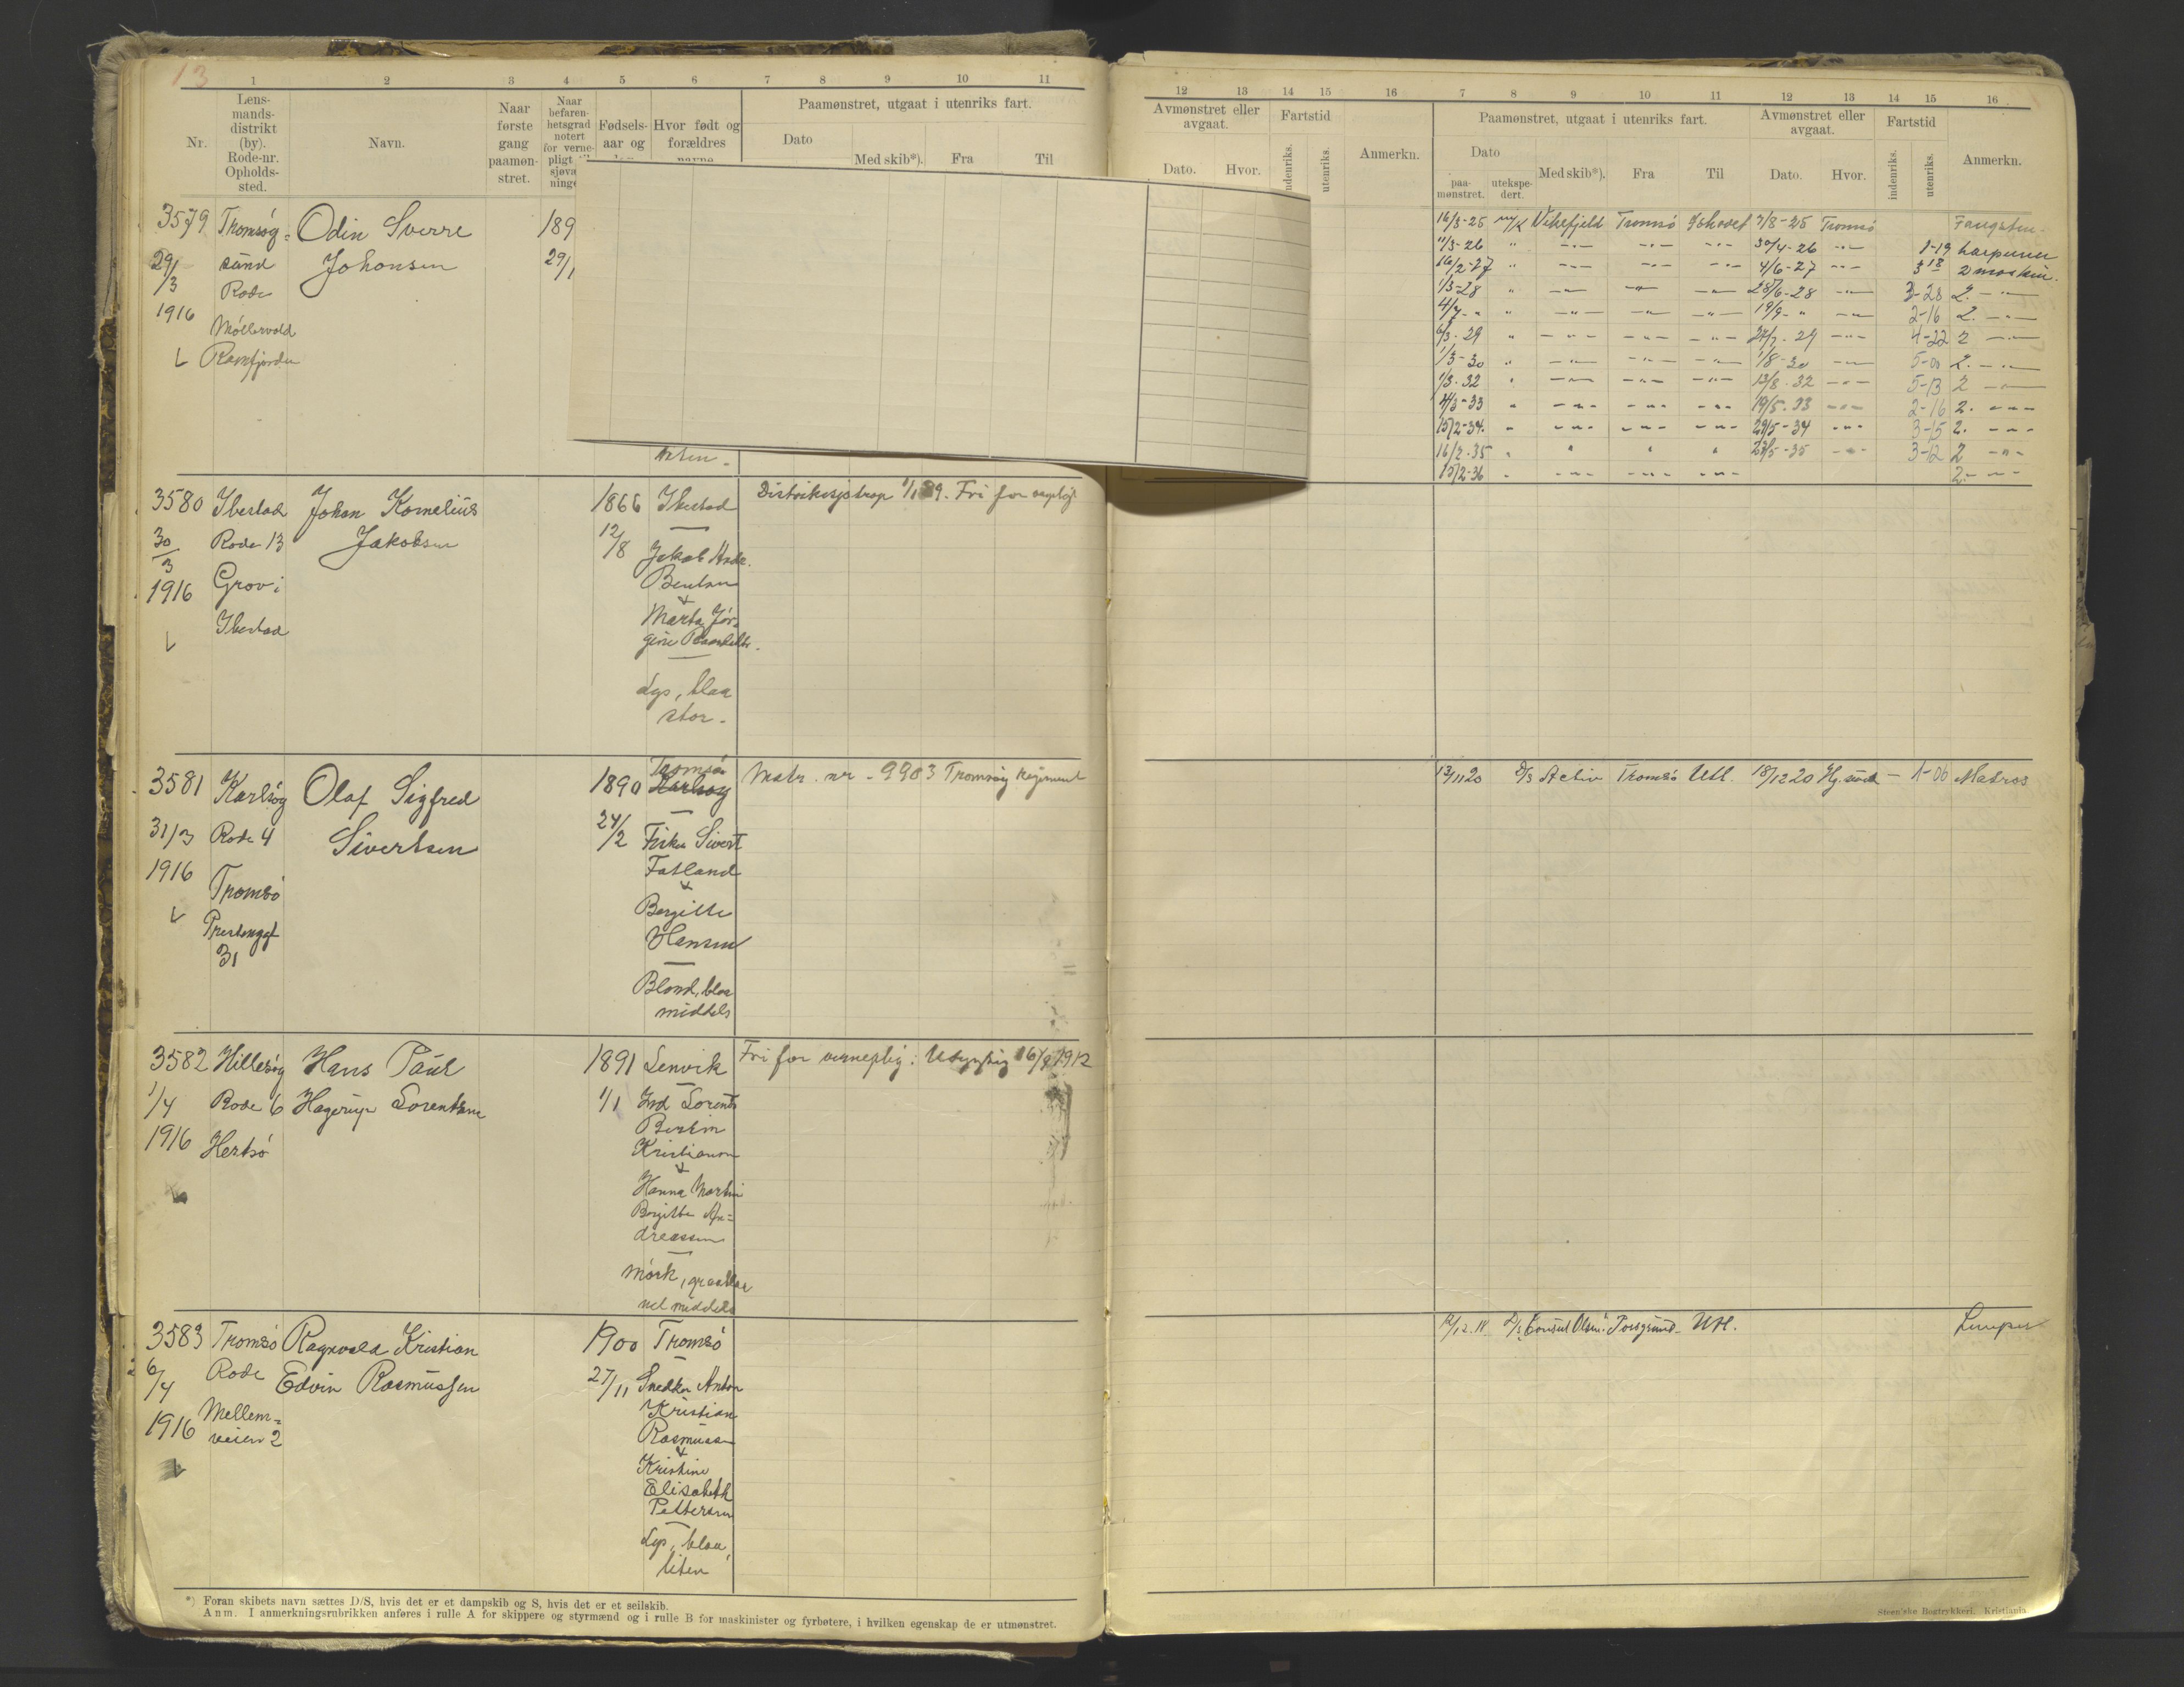 13
1 2 3 4 5 6 7 8 9 10 11
Nr.
Lens-
mands-
distrikt
(by).
Rode-nr.
Opholds-
sted.
Navn.
Naar
første
gang
paamøn-
stret.
Naar
befaren-
hetsgrad
notert
for verne-
pligt
Fødsels-
aar og
Hvor født og
forældres
Paamønstret, utgaat i utenriks fart.
Dato
Med skib*).
Fra
Til
3579
29/3
1916
Tromsøy-
sund
Rode
Møllervold
Ramfjorden
Odin Sverre
Johansen
189
29/1
liten -
3580
30/3
1916
Ibestad
Rode 13
Grov i
Ibestad
Johan Kornelius
Jakobsen
1866
12/8
Ibestad
Jakob Andr.
Bentsen
&
Marta Jør-
gine
Lys, blaa
stor -
Fri for
3581
31/3
1916
Karlsøy
Rode 4
Tromsø
31
Olaf Sigfred
Sivertsen
1890
24/2
Tromsø
Karlsøy
Fisker Sivert
Fatland
&
Bergitte
Hansen
Blond, blaa
middels
Matr. nr - 9903 Tromsøy Regiment
3582
1/4
1916
Hillesøy
Rode 6
Hans Paul
Hagerup Lorentsen
1891
1/1
Lenvik
Ind Lorents
Kristiansen
&
Hanna Martin
Bergitte An=
dreassen
Mørk, graablaa
vel middels
Fri for vernepligt: Udygtig 16/9 1912
3583
6/4
1916
Tromsø
Rode
Mellem=
veien 2
Ragnvald Kristian
Edvin Rasmussen
1900
27/11
Tromsø
Snedker Anton
Kristian
Rasmussen
&
Kristine
Elisabeth
Pettersen
Lys, blaa,
liten
*) Foran skibets navn sættes D/S, hvis det er et dampskib og S, hvis det er et seilskib.
Anm. I anmerkningsrubrikken anføres i rulle A for skippere og styrmænd og i rulle B for maskinister og fyrbøtere, i hvilken egenskap de er utmønstret.
12 13 14 15 16 7 8 9 10 11 12 13 14 15 16
Avmønstret eller
avgaat.
Dato.
Hvor.
Fartstid
indenriks.
utenriks.
Anmerkn.
Paamønstret, utgaat i utenriks fart.
Dato
paa-
mønstret.
utekspe-
dert.
Med skib*).
Fra
Til
Avmønstret eller
avgaat.
Dato.
Hvor.
Fartstid
indenriks.
utenriks.
Anmerkn.
16/3-25 m/k Vikefjeld Tromsø Ishavet 7/8-25 Tromsø Fangstm.
11/3-26 " -"- -"- -"- 30/4-26 -"- 1-19 harpuner
16/2-27 " -"- -"- -"- 4/6-27 -"- 3 18 2 maskin.
1/3-28 " -"- -"- -"- 28/6-28 -"- 3-28 2. -"-
4/7-" " -"- -"- -"- 19/9-" -"- 2-16 2. -"-
6/3-29 " -"- -"- -"- 27/7-29 -"- 4-22 2 -"-
1/3-30 " -"- -"- -"- 1/8-30 -"- 5-00 2. -"-
1/3-32 " -"- -"- -"- 13/8-32 -"- 5-13 2 -"-
4/3-33 " -"- -"- -"- 19/5-33 -"- 2-16 2. -"-
15/2-34. " -"- -"- -"- 29/5-34 -"- 3-15 2. -"-
16/2-35 " " " " 27/5-35 -"- 3-12 2 -"-
15/2-36 " -"- -"- -"- 2. -"-
13/11 20 D/S Activ Tromsø Utl. 18/12 20 - 1-06 Matros
12/12.18 D/S "Consul Olsen" Porsgrund - Utl. Lemper
Steen'ske Bogtrykkeri, Kristiania